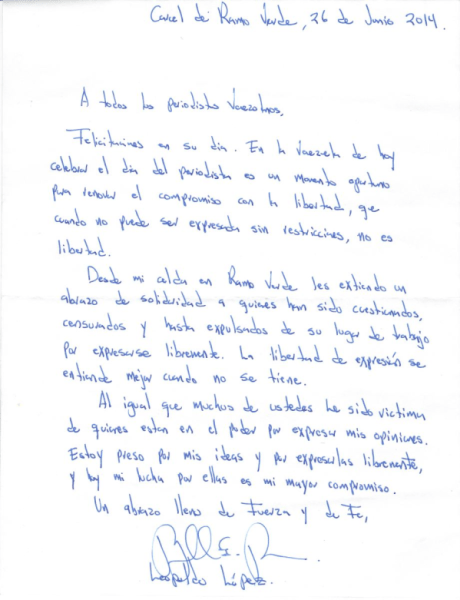 Carcel de Ramo Verde, 26 de Junio 2014.
A todos los periodistas Venezolanos,
Felicitaciones en su día. En la Venezuela de hoy
celebrar el día del periodista es un momento oportuno
para renovar el compromiso con la libertad, que
cuando no puede ser expresada sin restricciones, no es
libertad.
Desde mi celda en Ramo Verde les extiendo un
abrazo de solidaridad a quienes han sido cuestionados,
censurados y hasta expulsados de su lugar de trabajo
por expresarse libremente. La libertad de expresión se
entiende mejor cuando no se tiene.
Al igual que muchos de ustedes he sido victima
de quienes estan en el poder por expresar mis opiniones.
Estoy preso por mis ideas y por expresarlas libremente,
y hoy mi lucha por ellas es mi mayor compromiso.
Un abrazo lleno de Fuerza y de Fe,
Leopoldo López.